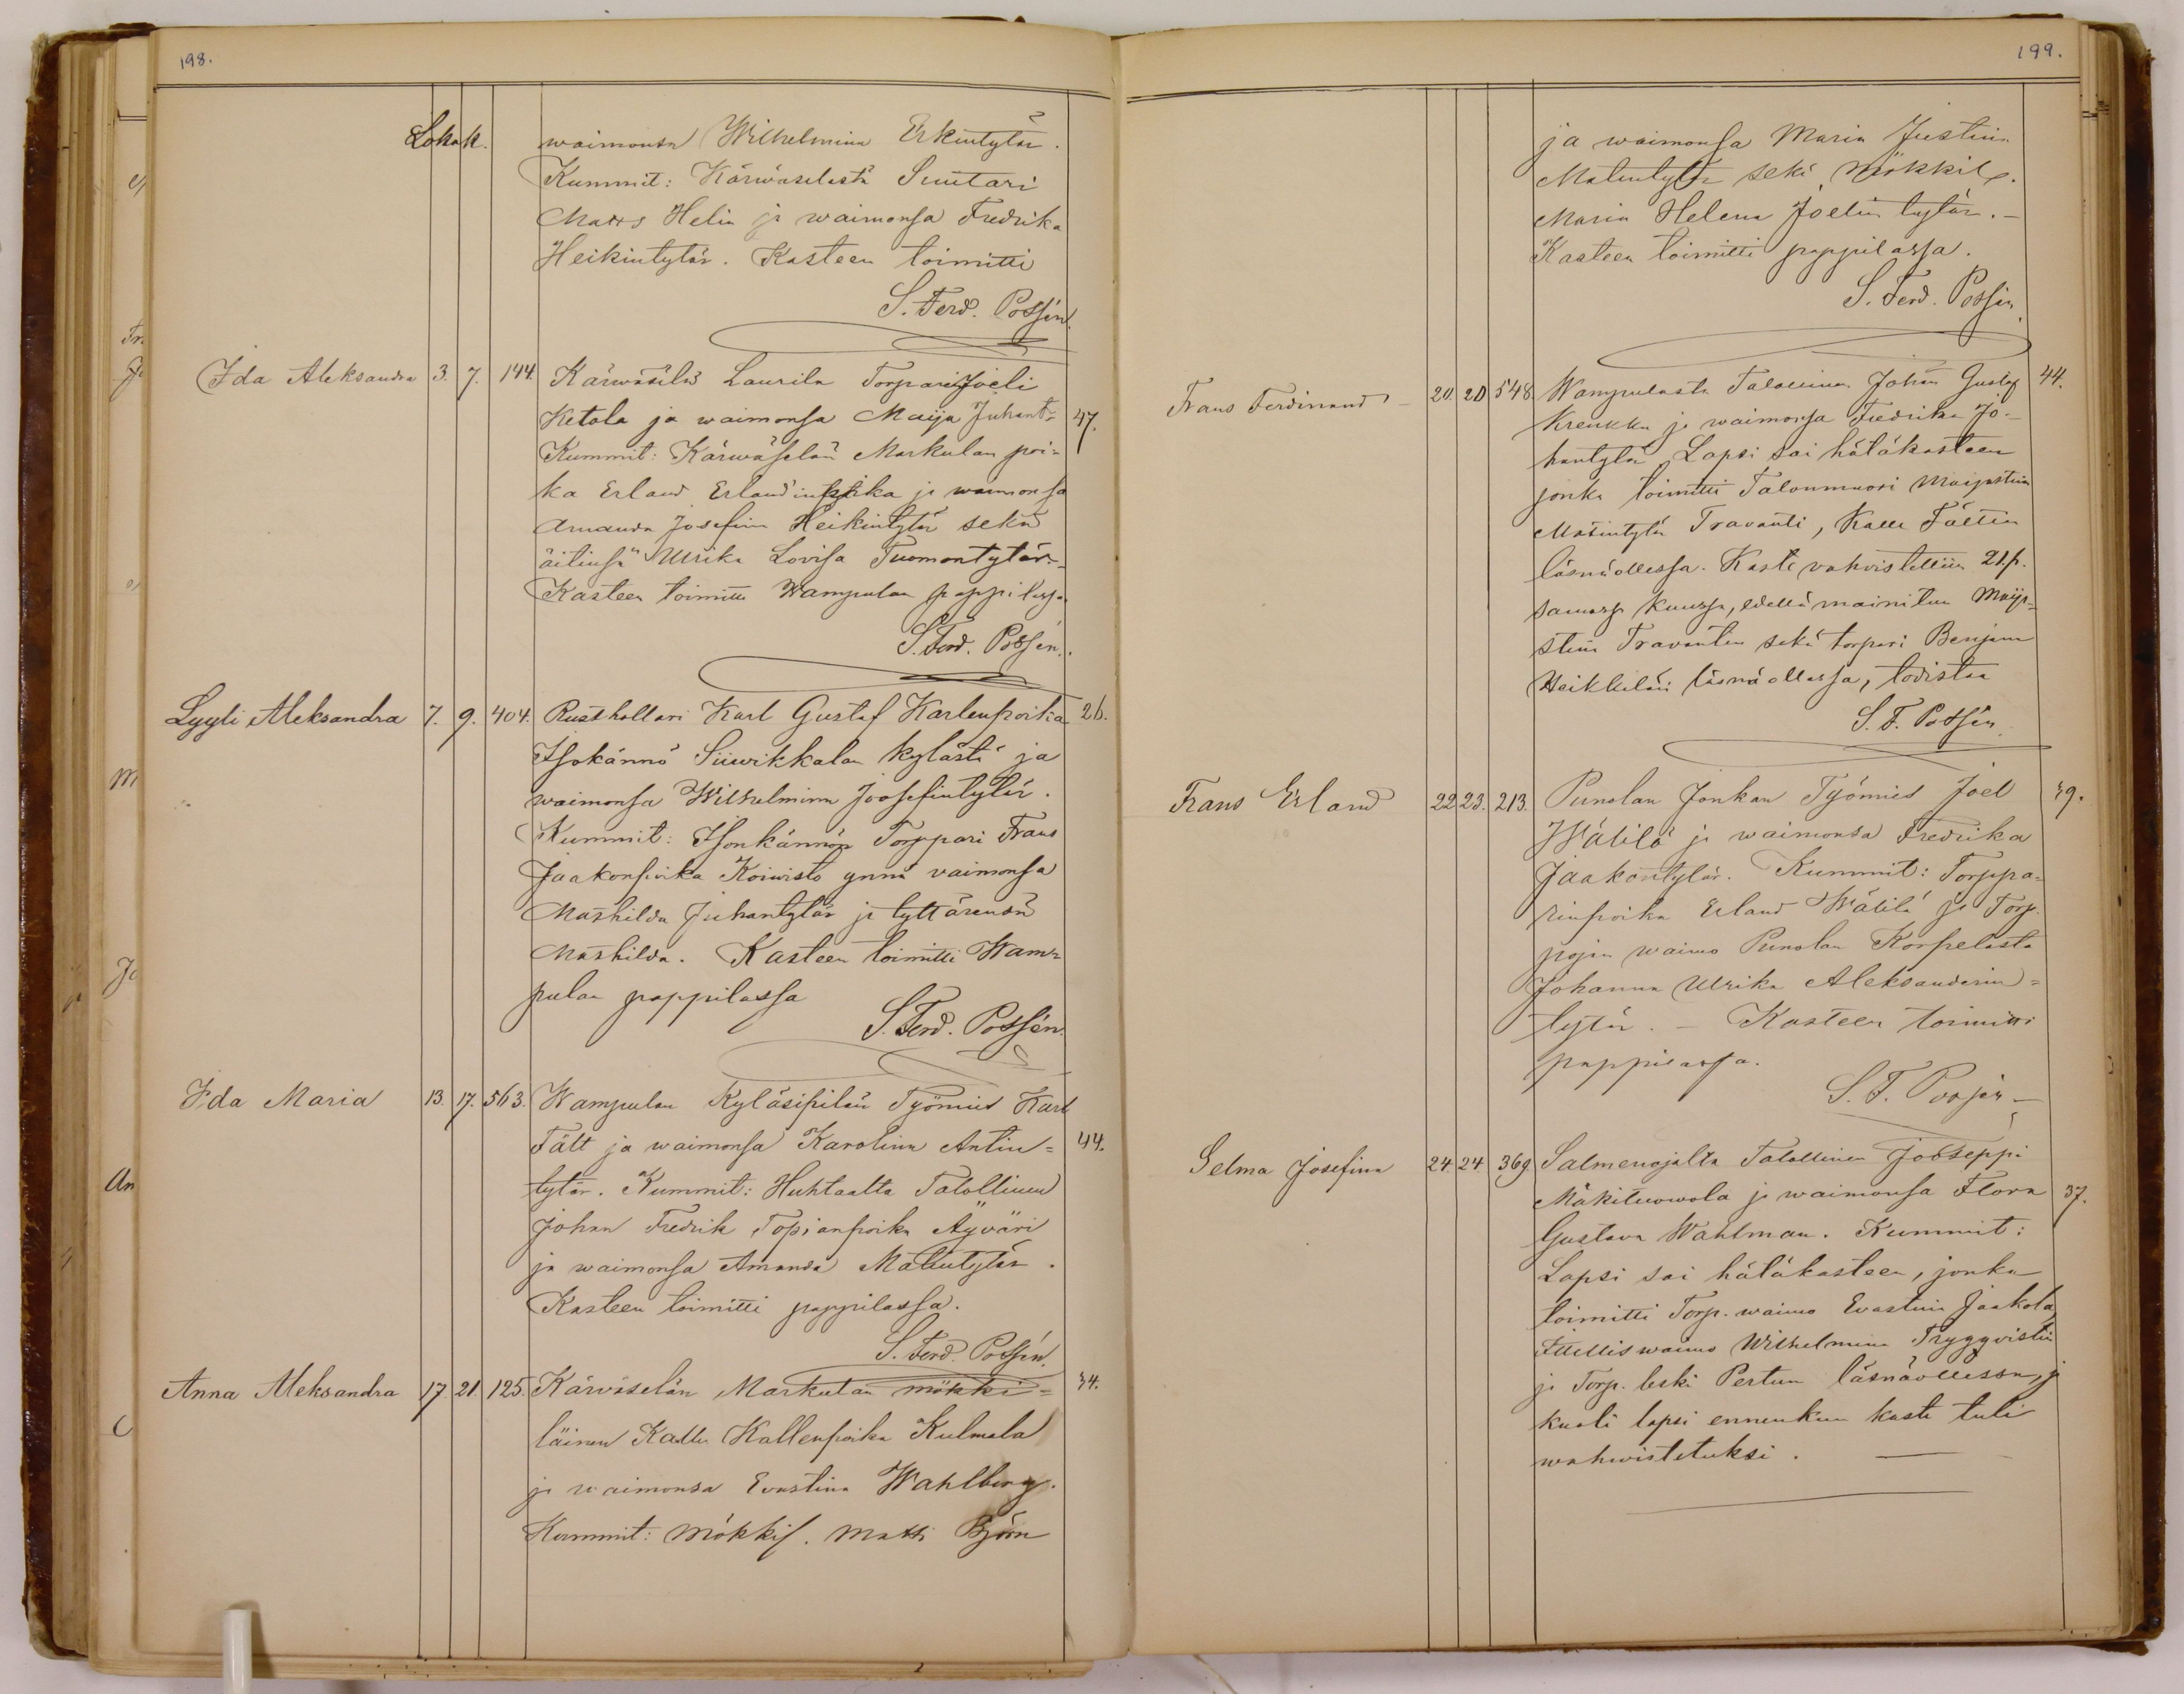 198.
Lokak.
waimonsa Wilhelmina Erkintytär.
Kummit: Kärwäselästä Suutari
Matts Helin ja waimonsa Fredrika
Heikintytär. Kasteen toimitti
S. Ferd. Possén.
Ida Aleksandra 3. 7. 144. Kärwäselä Laurila Torpari Joeli
Ketola ja waimonsa Maija Juhant. 47.
Kummit: Kärwäselän Markulan poi-
ka Erland Erlandinpoika ja waimonsa
Amanda Josefina Heikintytär sekä
äitinsä Ulrika Lovisa Tuomontytär.
Kasteen toimitti Wampulan pappilassa
S. Ferd. Possén.
Lyyli Aleksandra 7. 9. 404. Rusthollari Karl Gustaf Karlenpoika 26.
Isokännö Siiwikkalan kylästä ja
waimonsa Wilhelmina Joosefintytär.
Kummit: Isonkännön Torppari Frans
Jaakonpoika Koiwisto ynnä vaimonsa
Mathilda Juhantytär ja tyttärensä
Mathilda. Kasteen toimitti Wam-
pulan pappilassa
S. Ferd. Possén.
Ida Maria 13. 17. 563. Wampulan Kyläsipilän Työmies Karl
Fält ja waimonsa Karolina Antin= 44.
tytär. Kummit: Huhtaalta Talollinen
Johan Fredrik Topianpoika Äyväri
ja waimonsa Amanda Matintytär.
Kasteen toimitti pappilassa.
S. Ferd. Possén.
Anna Aleksandra 17. 21. 125. Kärväselän Markulan mökki= 34.
läinen Kalle Kallenpoika Kulmala
ja waimonsa Evastina Wahlberg.
Kummit: Mökkil. Matti Björn
199.
ja waimonsa Maria Justiin
Matintytär sekä Mökkil.
Maria Helena Joelin tytär. —
Kasteen toimitti pappilassa.
S. Ferd. Possén.
Frans Ferdinand 20. 20 548. Wampulasta Talollinen Johan Gustaf 44.
Krenkku ja waimonsa Fredrika Jo-
hantytär Lapsi sai hätäkasteen
jonka toimitti Talonmuori Maijastiina
Matintytär Travanti, Kalle Fältin
läsnäollessa. Kaste vahvistettiin 21.p.
samassa kuussa, edellä mainitun Maija-
stiina Travantin sekä torpari Benjam
Heikkilän läsnäollessa, todistaa
S. F. Possén.
Frans Erland 22 23. 213. Punolan Jonkan Työmies Joel 39.
Wälilä ja waimonsa Fredrika
Jaakontytär. Kummit: Torppa-
rinpoika Erland Wälilä ja Torp.
pojan waimo Punolan Korpelasta
Johanna Ulrika Aleksanderin=
tytär. — Kasteen toimitti
pappilassa.
S. F. Possén
Selma Josefina 24. 24 369 Salmenojalta Talollinen Jooseppi
Mäkituowola ja waimonsa Flora 37.
Gustava Wahlman. Kummit:
Lapsi sai hätäkasteen, jonka
toimitti Torp. waimo Evastiin Jaakola,
Itellis waimo Wilhelmina Tryggvistin
ja Torp. leski Pertun läsnäollessa, ja
kuoli lapsi ennenkun kaste tuli
wahwistetuksi. —